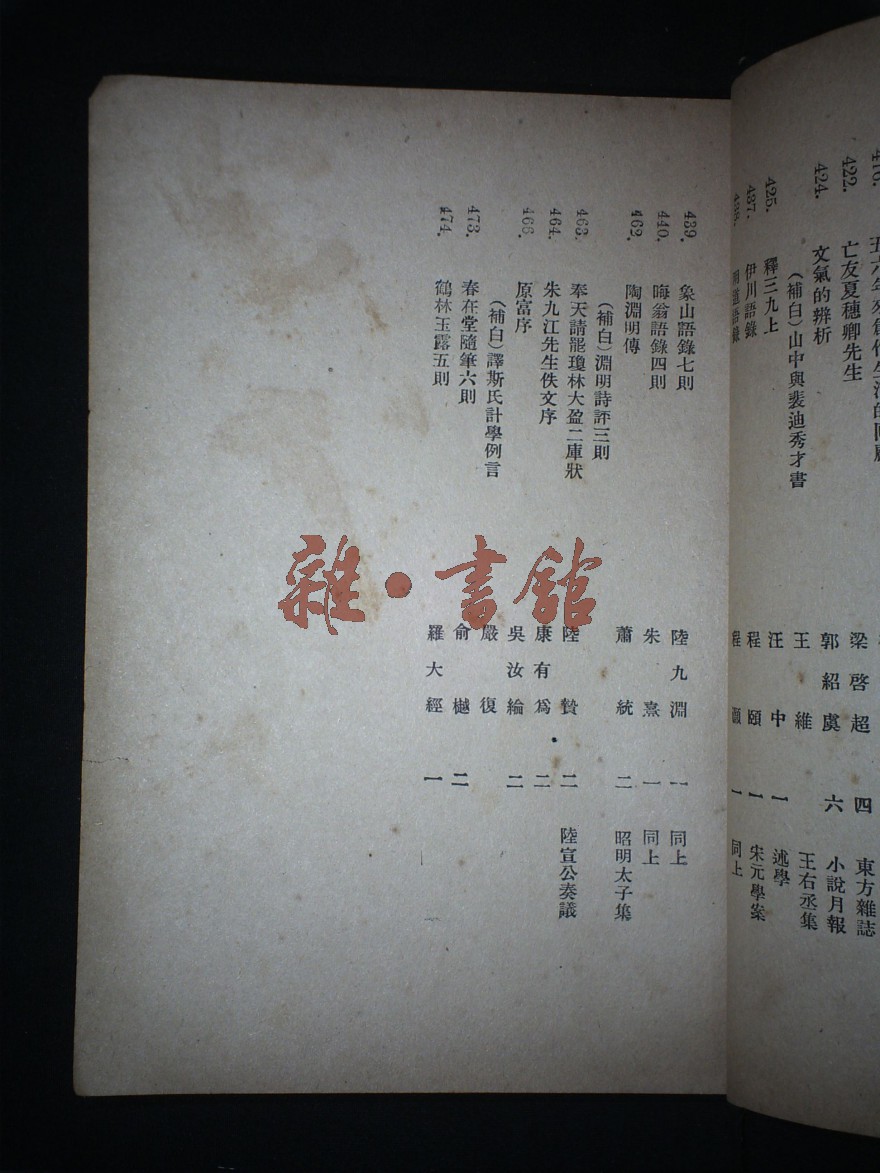 五六年來創作生活的回顧
422. 亡友夏穗卿先生 梁啓超 四 東方雜誌
424. 文氣的辨析 郭紹虞 六 小說月報
(補白)山中與裴迪秀才書 王維 王右丞集
425. 釋三九上 汪中 一 述學
437. 伊川語錄 程頤 一 宋元學案
明道語錄 程顥 一 同上
439. 象山語錄七則 陸九淵 一 同上
440. 晦翁語錄四則 朱熹 一 同上
462. 陶淵明傳 蕭統 二 昭明太子集
(補白)淵明詩評三則
463. 奉天請罷瓊林大盈二庫狀 陸贄 二 陸宣公奏議
464. 朱九江先生佚文序 康有爲 二
466. 原富序 吳汝綸 二
(補白)譯斯氏計學例言 嚴復
473. 春在堂隨筆六則 俞樾 二
474. 鶴林玉露五則 羅大經 一
雜·書館